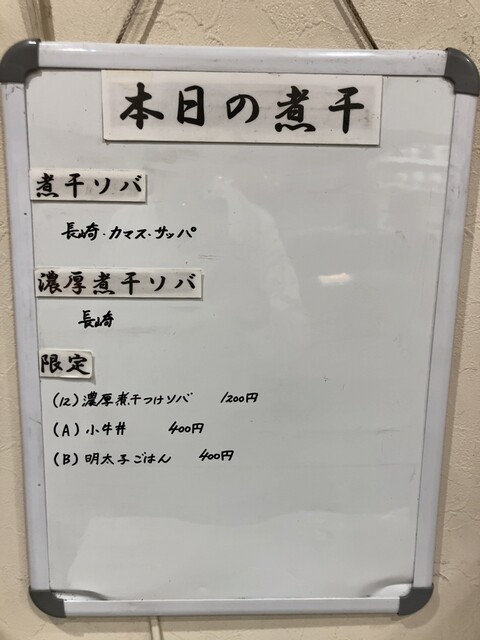 本日の煮干
煮干ソバ
長崎・カマス・サッパ
濃厚煮干ソバ
長崎
限定
(12) 濃厚煮干つけソバ 1200円
(A) 小牛丼 400円
(B) 明太子ごはん 400円